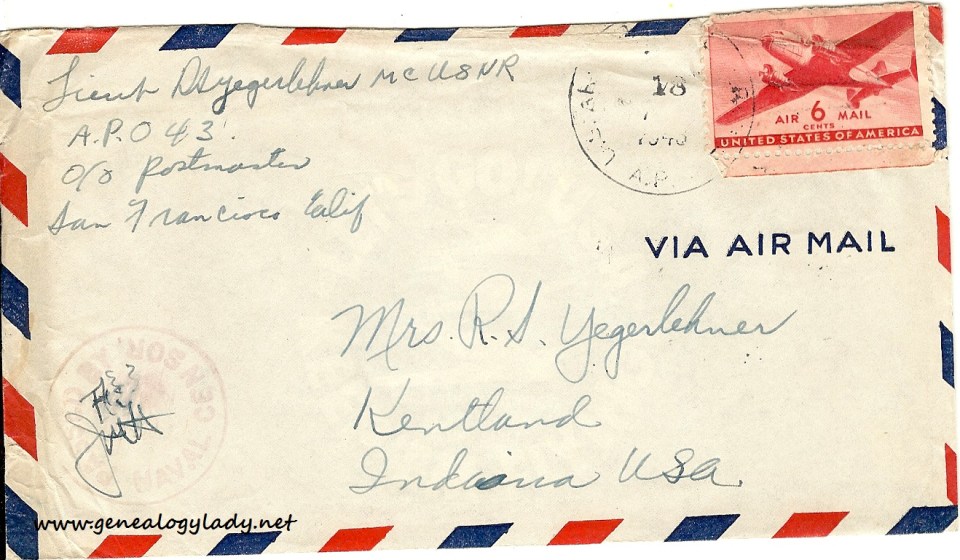 Lieut DS Yegerlehner MC USNR
A.P.O 43
c/o Postmaster
San Francisco Calif
18
A.P.
AIR 6 MAIL
CENTS
UNITED STATES OF AMERICA
VIA AIR MAIL
Mrs. R. S. Yegerlehner
Kentland
Indiana USA
PASSED BY NAVAL CENSOR
www.genealogylady.net